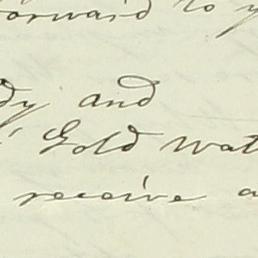 forward to y
dy and
Gold Wat
receive a